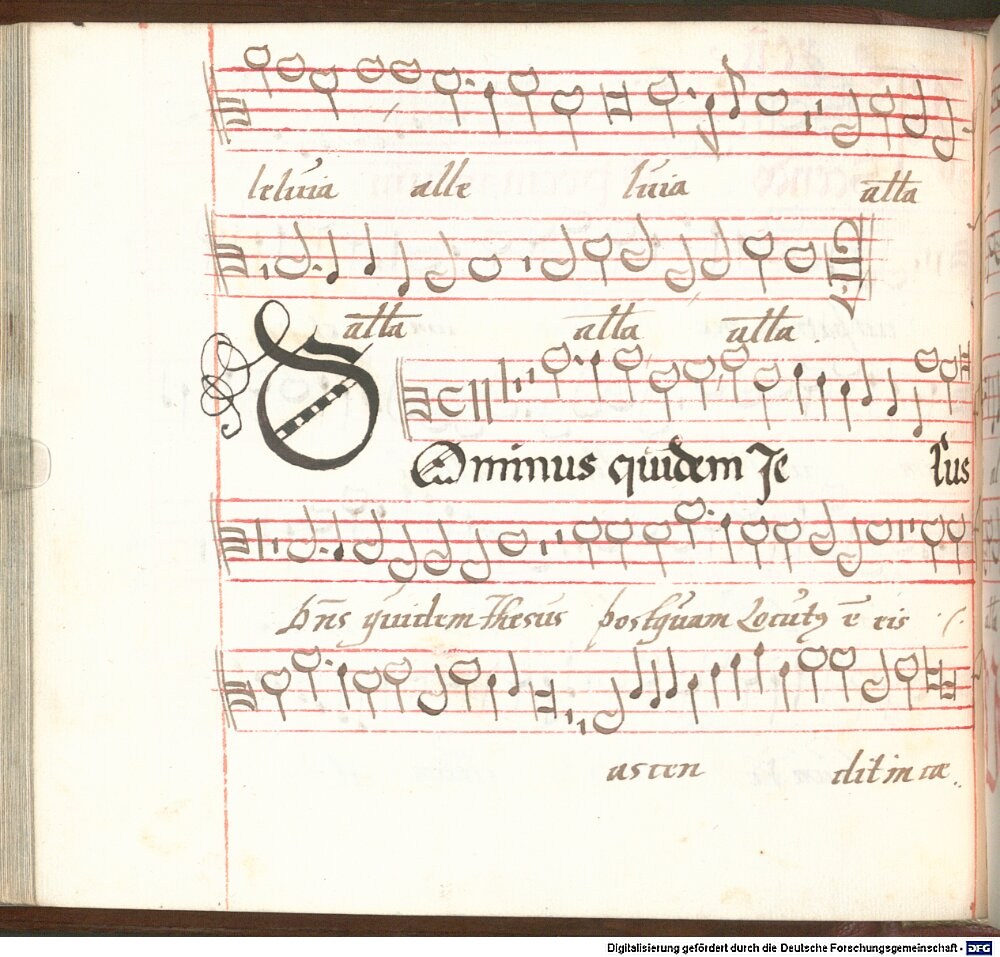 leluia alle luia alla
alla alla alla.
Dominus quidem Je sus
Dns quidem Jhesus postquam Locutꝰ ē eis
ascen dit in cæ.
Digitalisierung gefördert durch die Deutsche Forschungsgemeinschaft - DFG